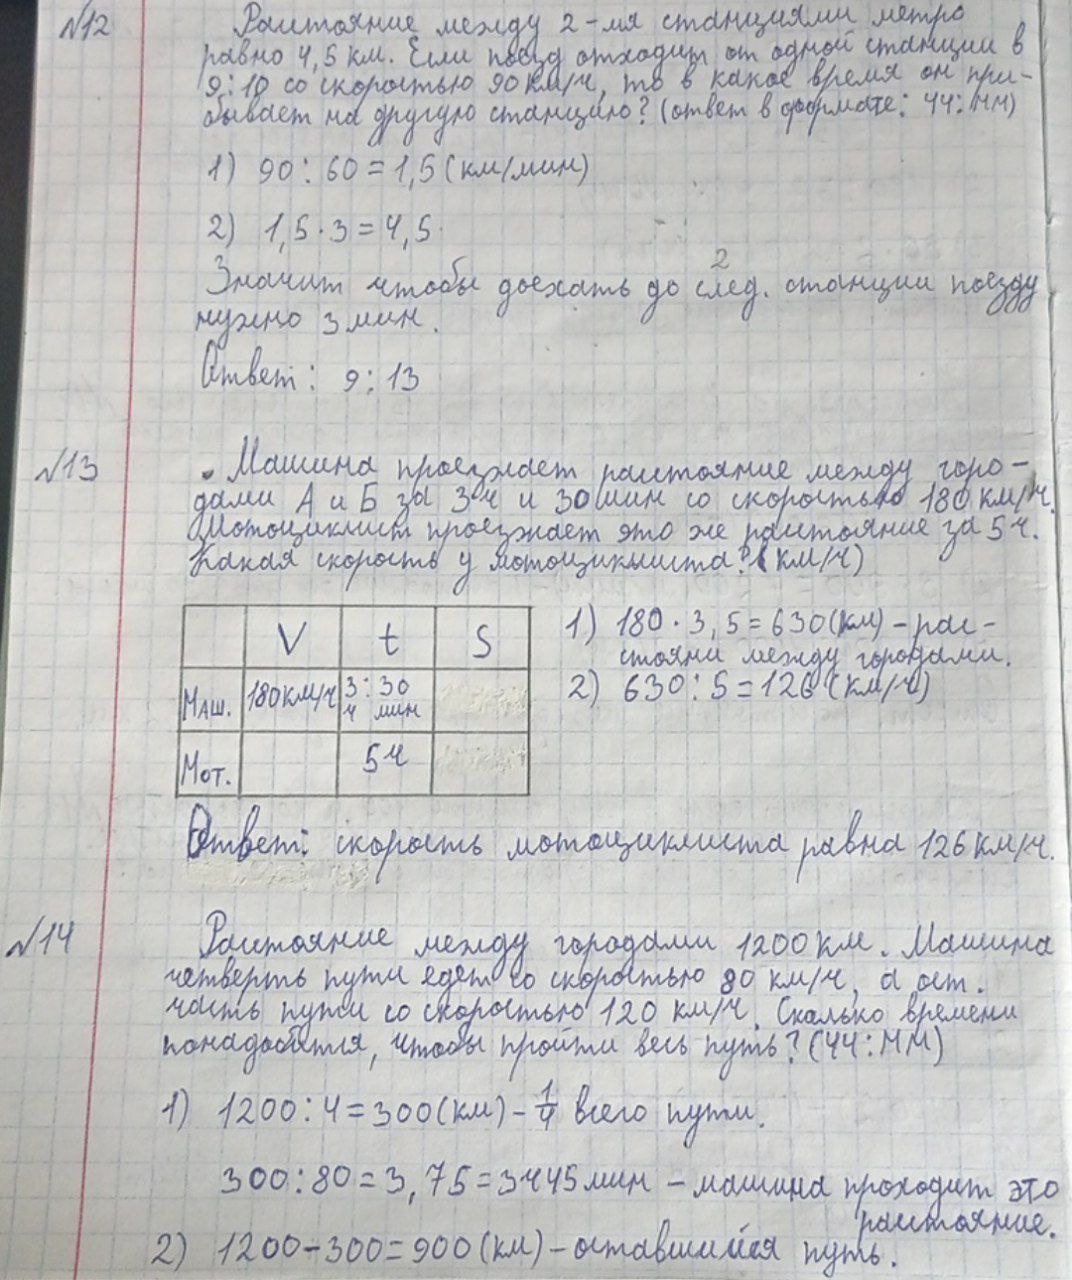 №12 Расстояние между 2-мя станциями метро
равно 4,5 км. Если поезд отходит от одной станции в
9:10 со скоростью 90 км/ч, то в какое время он при-
бывает на другую станцию? (ответ в формате: ЧЧ:ММ)
1) 90:60=1,5(км/мин)
2) 1,5·3=4,5
2
Значит чтобы доехать до след. станции поезду
нужно 3 мин.
Ответ: 9:13
№13 Машина проезжает расстояние между горо-
дами А и Б за 3ч и 30мин со скоростью 180 км/ч.
Мотоциклист проезжает это же расстояние за 5ч.
Какая скорость у мотоциклиста? (км/ч)
V t S
Маш. 180км/ч 3:30
ч мин
Мот. 5ч
1) 180·3,5=630(км)-рас-
стояни между городами.
2) 630:5=126 (км/ч)
Ответ: скорость мотоциклиста равна 126 км/ч.
№14 Расстояние между городами 1200 км. Машина
четверть пути едет со скоростью 80 км/ч, а ост.
часть пути со скоростью 120 км/ч. Сколько времени
понадобится, чтобы пройти весь путь? (ЧЧ:ММ)
1) 1200:4=300(км)-1/4 всего пути.
300:80=3,75=3ч45мин - машина проходит это
расстояние.
2) 1200-300=900(км)-оставшийся путь.